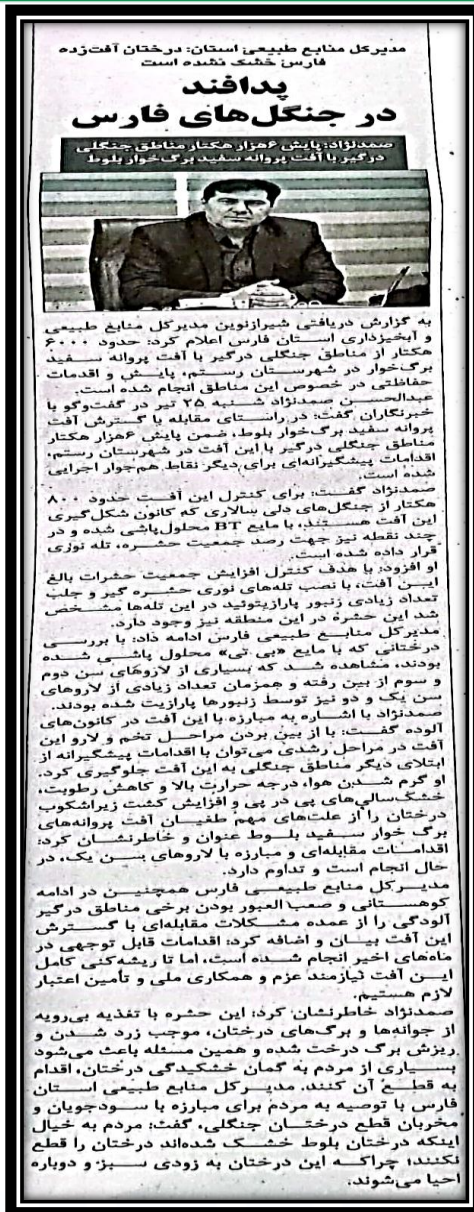 مدیرکل منابع طبیعی استان: درختان آفت‌زده
فارس خشک نشده است
پدافند
در جنگل‌های فارس
صمدنژاد: پایش ۶هزار هکتار مناطق جنگلی
درگیر با آفت پروانه سفید برگ‌خوار بلوط
به گزارش دریافتی شیرازنوین مدیرکل منابع طبیعی
و آبخیزداری استان فارس اعلام کرد: حدود ۶۰۰۰
هکتار از مناطق جنگلی درگیر با آفت پروانه سفید
برگ‌خوار در شهرستان رستم، پایش و اقدمات
حفاظتی در خصوص این مناطق انجام شده است.
عبدالحسن صمدنژاد شنبه ۲۵ تیر در گفت‌وگو با
خبرنگاران گفت: در راستای مقابله با گسترش آفت
پروانه سفید برگ‌خوار بلوط، ضمن پایش ۶هزار هکتار
مناطق جنگلی درگیر با این آفت در شهرستان رستم،
اقدامات پیشگیرانه‌ای برای دیگر نقاط هم‌جوار اجرایی
شده است.
صمدنژاد گفت: برای کنترل این آفت حدود ۸۰۰
هکتار از جنگل‌های دلی سالاری که کانون شکل‌گیری
این آفت هستند، با مایع BT محلول‌پاشی شده و در
چند نقطه نیز جهت رصد جمعیت حشره، تله نوری
قرار داده شده است.
او افزود: با هدف کنترل افزایش جمعیت حشرات بالغ
این آفت، با نصب تله‌های نوری حشره گیر و جلب
تعداد زیادی زنبور پارازیتوئید در این تله‌ها مشخص
شد این حشره در این منطقه نیز وجود دارد.
مدیرکل منابع طبیعی فارس ادامه داد: با بررسی
درختانی که با مایع «بی تی» محلول پاشی شده
بودند، مشاهده شد که بسیاری از لاروهای سن دوم
و سوم از بین رفته و همزمان تعداد زیادی از لاروهای
سن یک و دو نیز توسط زنبورها پارازیت شده بودند.
صمدنژاد با اشاره به مبارزه با این آفت در کانون‌های
آلوده گفت: با از بین بردن مراحل تخم و لارو این
آفت در مراحل رشدی می‌توان با اقدامات پیشگیرانه از
ابتلای دیگر مناطق جنگلی به این آفت جلوگیری کرد.
او گرم شدن هوا، درجه حرارت بالا و کاهش رطوبت،
خشک‌سالی‌های پی در پی و افزایش کشت زیراشکوب
درختان را از علت‌های مهم طغیان آفت پروانه‌های
برگ خوار سفید بلوط عنوان و خاطرنشان کرد:
اقدامات مقابله‌ای و مبارزه با لاروهای سن یک، در
حال انجام است و تداوم دارد.
مدیرکل منابع طبیعی فارس همچنین در ادامه
کوهستانی و صعب العبور بودن برخی مناطق درگیر
آلودگی را از عمده مشکلات مقابله‌ای با گسترش
این آفت بیان و اضافه کرد: اقدامات قابل توجهی در
ماه‌های اخیر انجام شده است، اما تا ریشه‌کنی کامل
این آفت نیازمند عزم و همکاری ملی و تأمین اعتبار
لازم هستیم.
صمدنژاد خاطرنشان کرد: این حشره با تغذیه بی‌رویه
از جوانه‌ها و برگ‌های درختان، موجب زرد شدن و
ریزش برگ درخت شده و همین مسئله باعث می‌شود
بسیاری از مردم به گمان خشکیدگی درختان، اقدام
به قطع آن کنند. مدیرکل منابع طبیعی استان
فارس با توصیه به مردم برای مبارزه با سودجویان و
مخربان قطع درختان جنگلی، گفت: مردم به خیال
اینکه درختان بلوط خشک شده‌اند درختان را قطع
نکنند؛ چراکه این درختان به زودی سبز و دوباره
احیا می‌شوند.